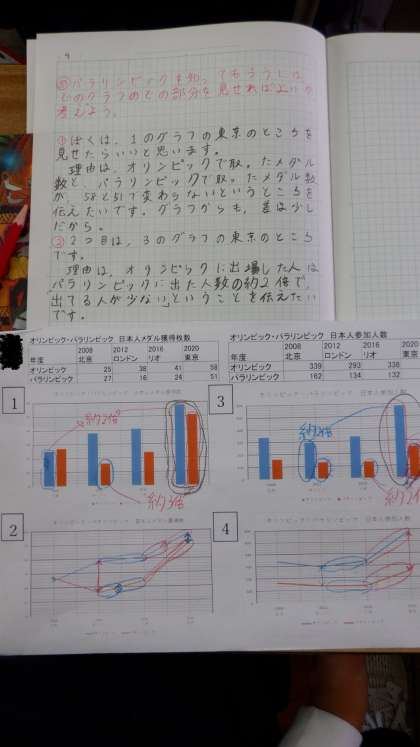 パラリンピックを知ってもらうには、
どのグラフのどの部分を見せればよいか
考えよう。
①ぼくは、1のグラフの東京のところを
見せたらいいと思います。
理由は、オリンピックで取ったメダル
数と、パラリンピックで取ったメダル数
が、58と51で変わらないというところを
伝えたいです。グラフからも、差は少し
だから。
②2つ目は、3のグラフの東京のところ
です。
理由は、オリンピックに出場した人は
パラリンピックに出た人数の約2倍で、
「出てる人が少ない」ということを伝えたい
です。
オリンピック・パラリンピック 日本人メダル獲得枚数
2008 2012 2016 2020
年度 北京 ロンドン リオ 東京
オリンピック 25 38 41 58
パラリンピック 27 16 24 51
オリンピック・パラリンピック 日本人参加人数
2008 2012 2016 2020
年度 北京 ロンドン リオ 東京
オリンピック 339 293 338
パラリンピック 162 134 132
1
約2倍
約3倍
3
約2倍
約2
2
4
オリンピック・パラリンピック 日本人参加人数